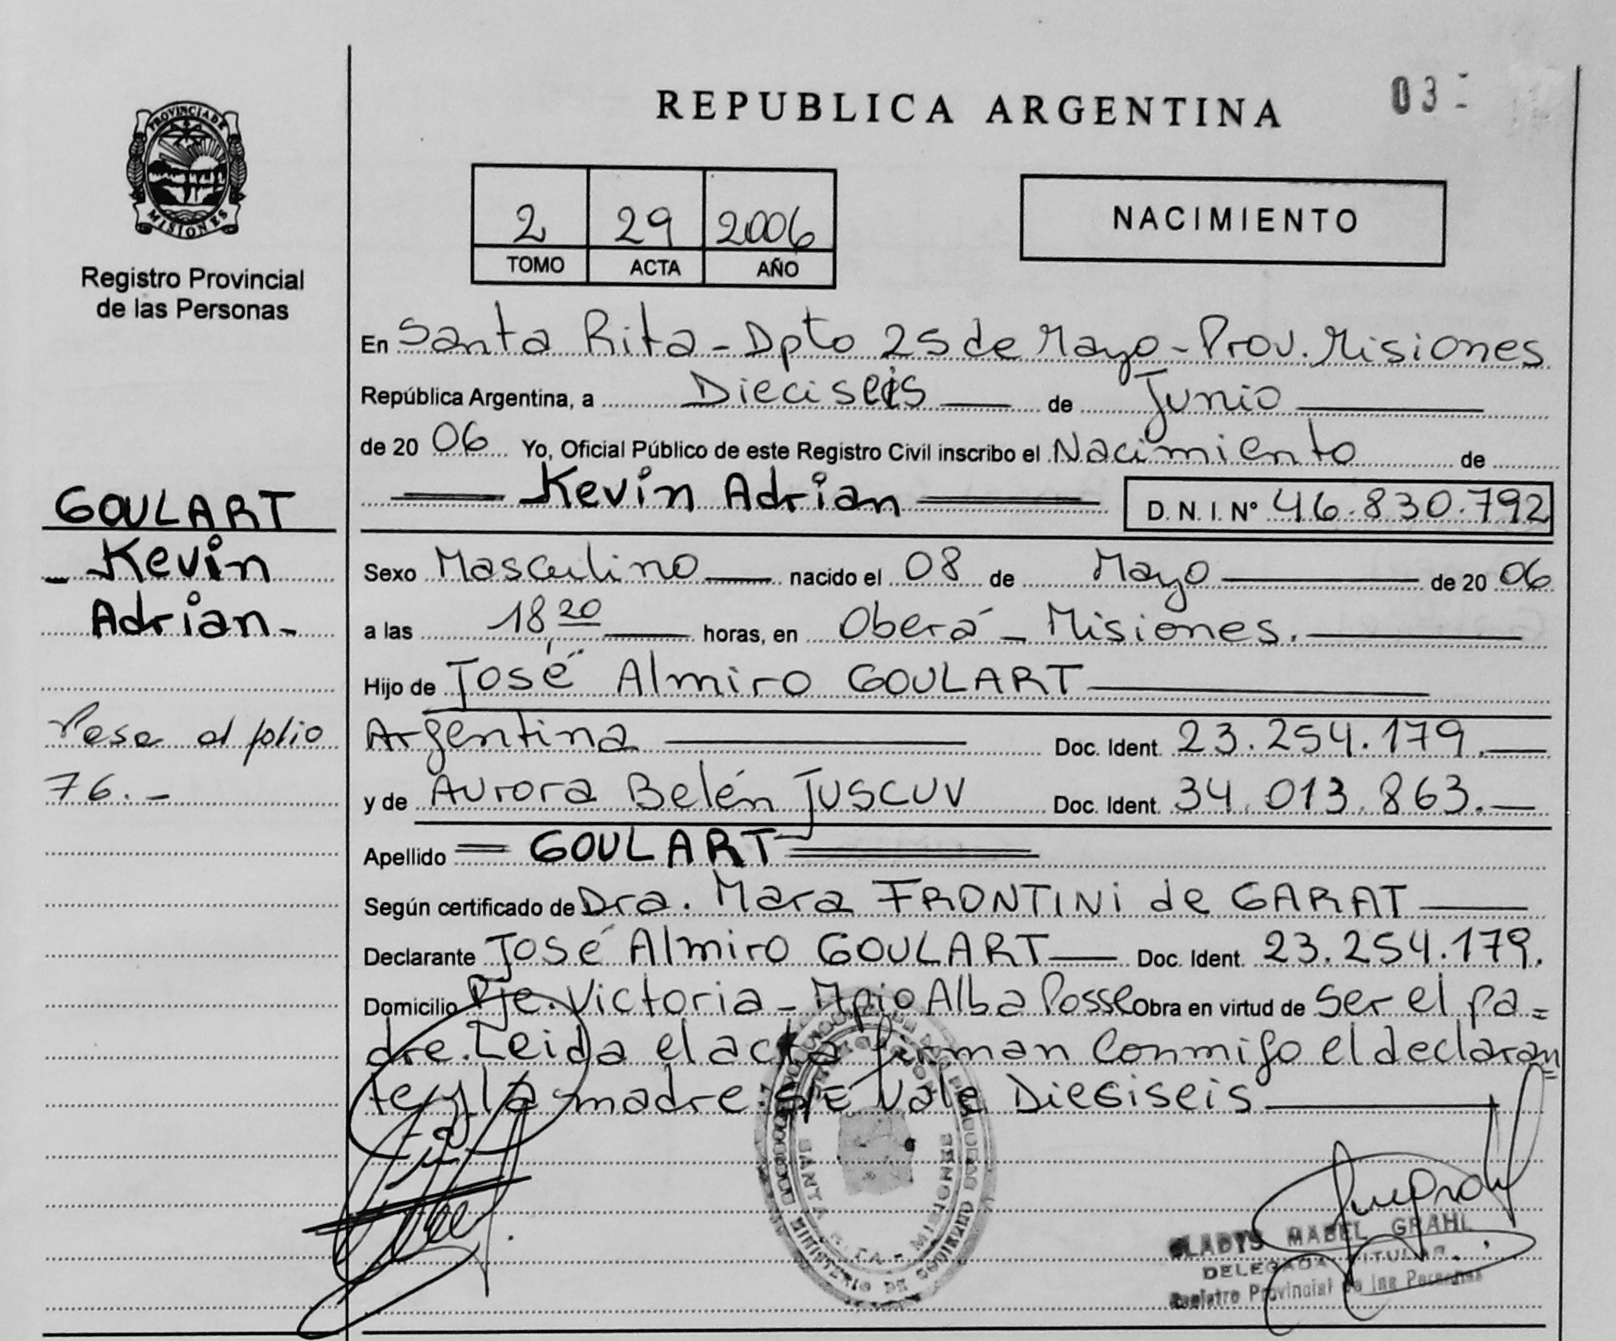 REPUBLICA ARGENTINA
03
PROVINCIA DE
MISIONES
Registro Provincial
de las Personas
2 29 2006
TOMO ACTA AÑO
NACIMIENTO
En Santa Rita - Dpto 25 de Mayo - Prov. Misiones
República Argentina, a Dieciseis de Junio
de 20 06 Yo, Oficial Público de este Registro Civil inscribo el Nacimiento de
Kevin Adrian D. N. I. N° 46.830.792
GOULART
Kevin
Adrian.
Sexo Masculino nacido el 08 de Mayo de 20 06
a las 18 20 horas, en Oberá - Misiones.
Hijo de José Almiro GOULART
Argentina Doc. Ident. 23.254.179.
y de Aurora Belén JUSCUV Doc. Ident. 34.013.863.
Pase al folio
76.-
Apellido GOULART
Según certificado de Dra. Mara FRONTINi de GARAT
Declarante José Almiro GOULART Doc. Ident. 23.254.179.
Domicilio Pje. Victoria - Mpio Alba Posse Obra en virtud de Ser el pa=
dre. Leida el acta firman Conmigo el declaran
te y la madre. S/E Vale Diesiseis
SANTA RITA - MISIONES
MINISTERIO DE GOBIERNO
GLADYS MABEL GRAHL
DELEGADA TITULAR
Registro Provincial de las Personas